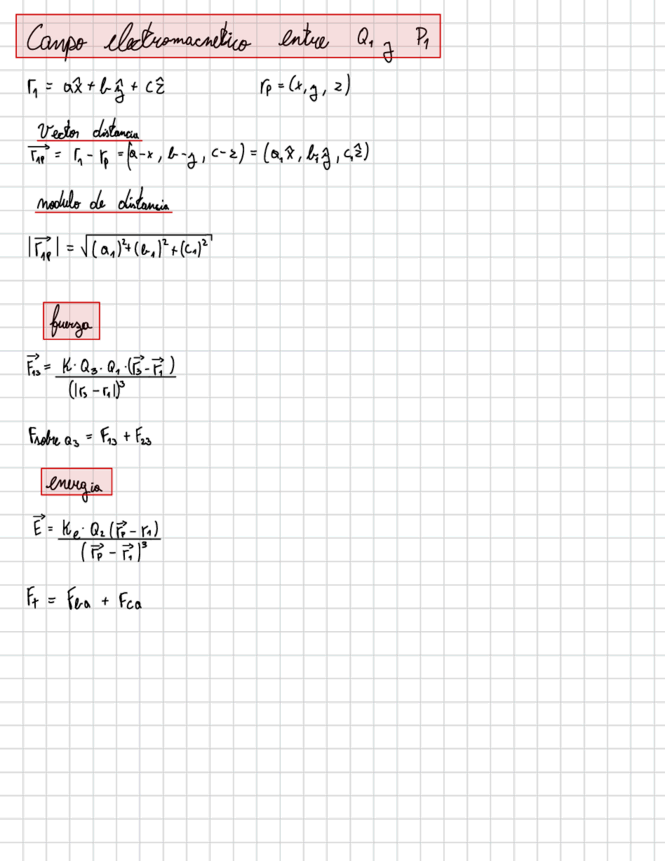 Campo electromacnetico entre Q₁ y P₁
r₁ = ax̂ + bŷ + cẑ rp = (x, y, z)
Vector distancia
r⃗₁p = r₁ - rp = (a-x, b-y, c-z) = (a₁x̂, b₁ŷ, c₁ẑ)
modulo de distancia
|r⃗₁p| = √(a₁)²+(b₁)²+(c₁)²
fuerza
F⃗₁₃ = K·Q₃·Q₁·(r⃗₃-r⃗₁)
(|r₃-r₁|)³
Fsobre Q₃ = F₁₃ + F₂₃
energia
E⃗ = Ke·Q₂(r⃗p - r₁)
(r⃗p - r⃗₁)³
F₊ = Fba + Fca